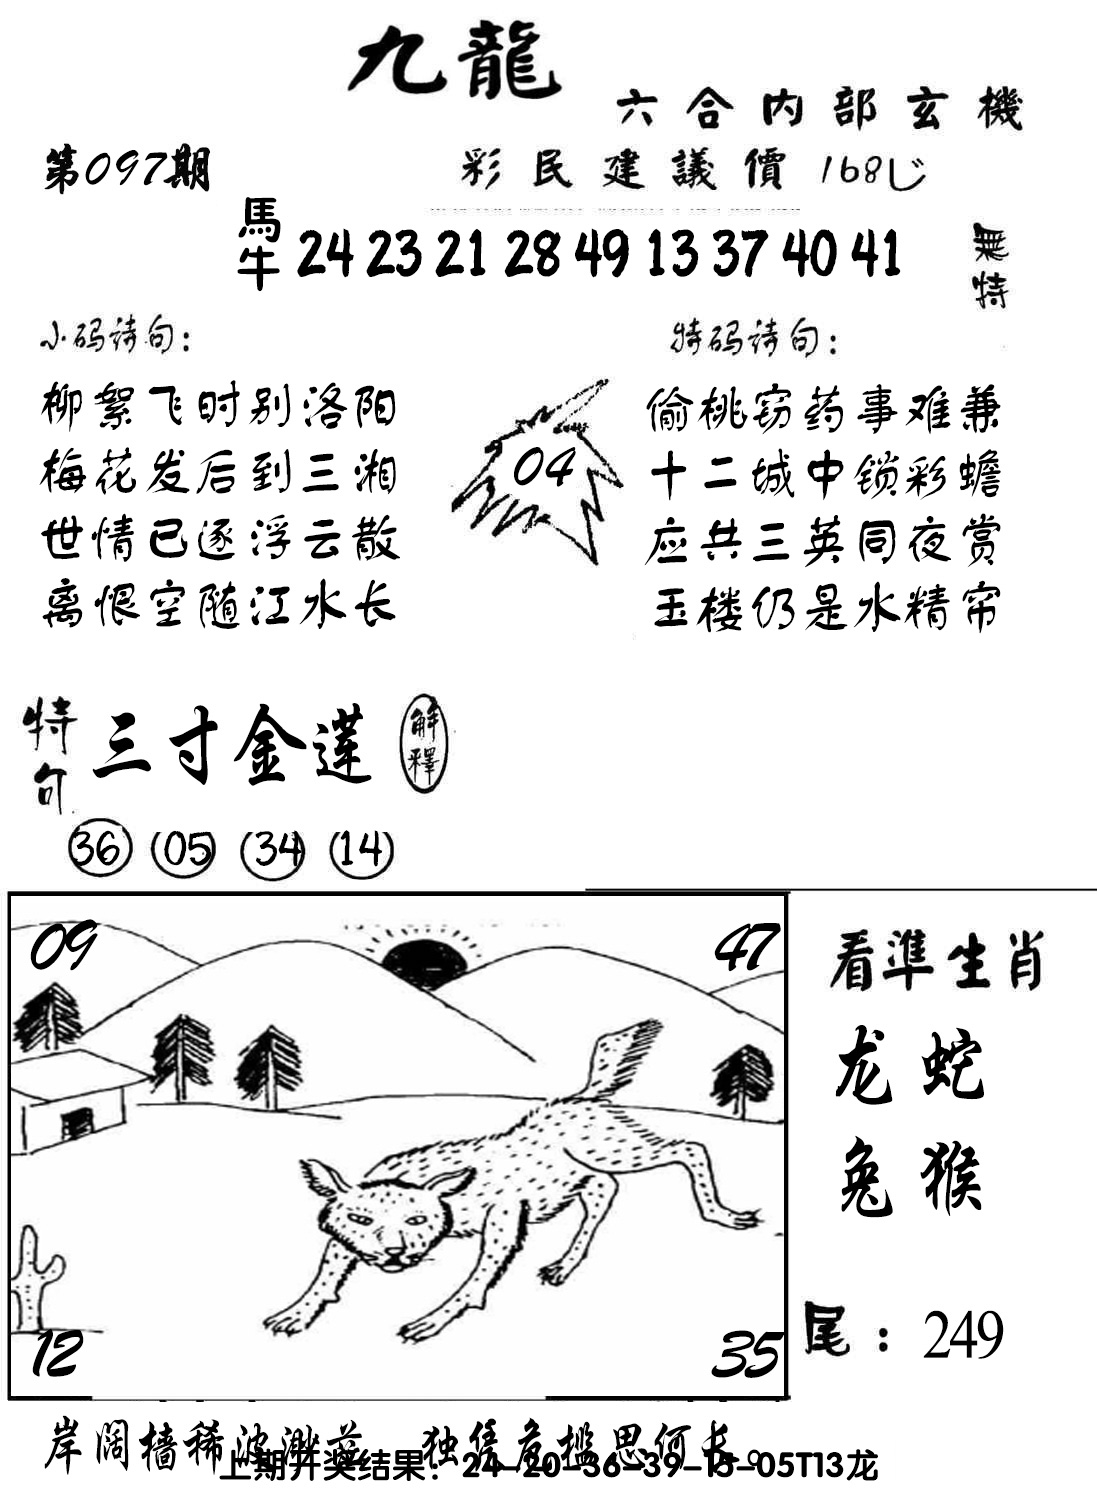 九龍
六合内部玄機
第097期
彩民建議價 168
馬牛 24 23 21 28 49 13 37 40 41
無特
小码诗句：
柳絮飞时别洛阳
梅花发后到三湘
世情已逐浮云散
离恨空随江水长
04
特码诗句：
偷桃窃药事难兼
十二城中锁彩蟾
应共三英同夜赏
玉楼仍是水精帘
特句
三寸金莲
解釋
36 (05) (34) (14)
09
47
12
35
看準生肖
龙 蛇
兔 猴
尾：249
岸阔樯稀波渺茫 独凭危槛思何长。
上期开奖结果：24-20-36-39-15-05T13龙